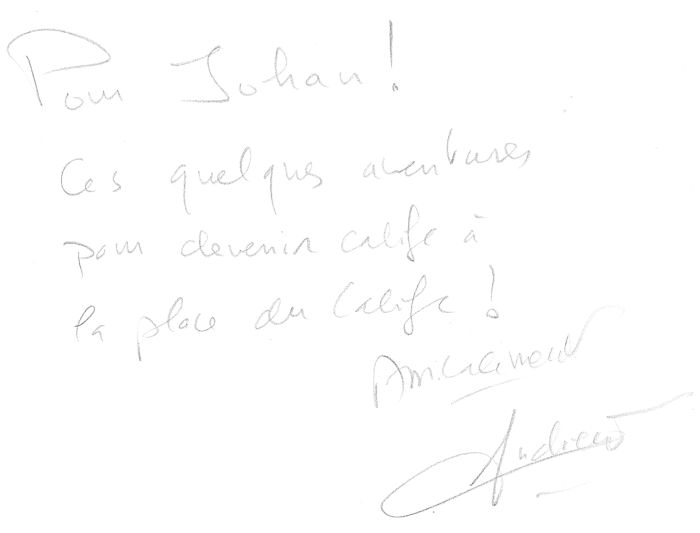 Pour Johan !
Ces quelques aventures
pour devenir calife à
la place du Calife !
Amicalement